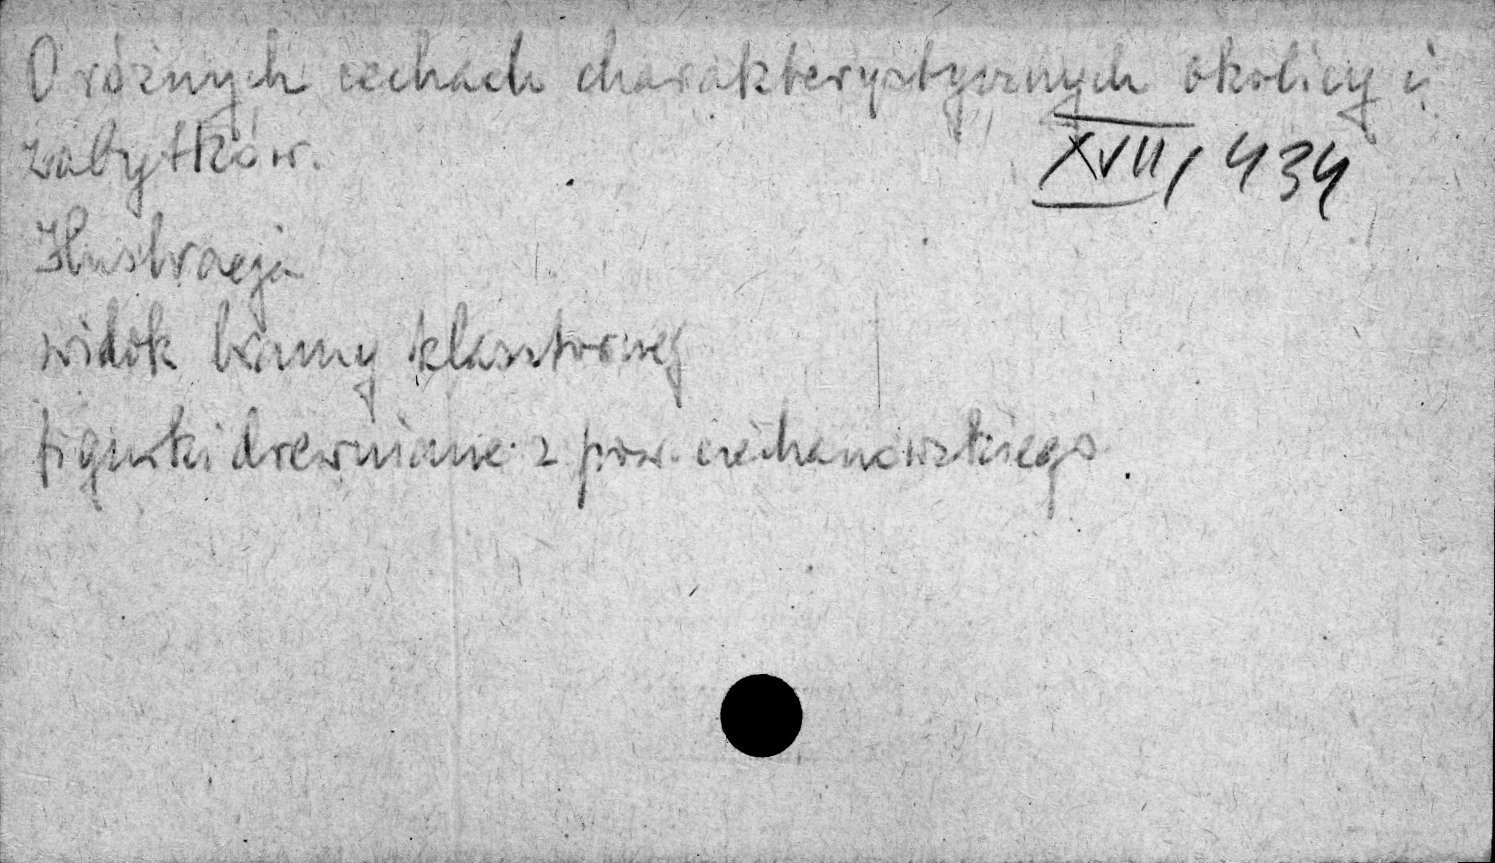 O różnych cechach charakterystycznych okolicy i
zabytków.
XVII, 434
Ilustracja
widok bramy klasztornej
figurki drewniane z pow. ciechanowskiego.